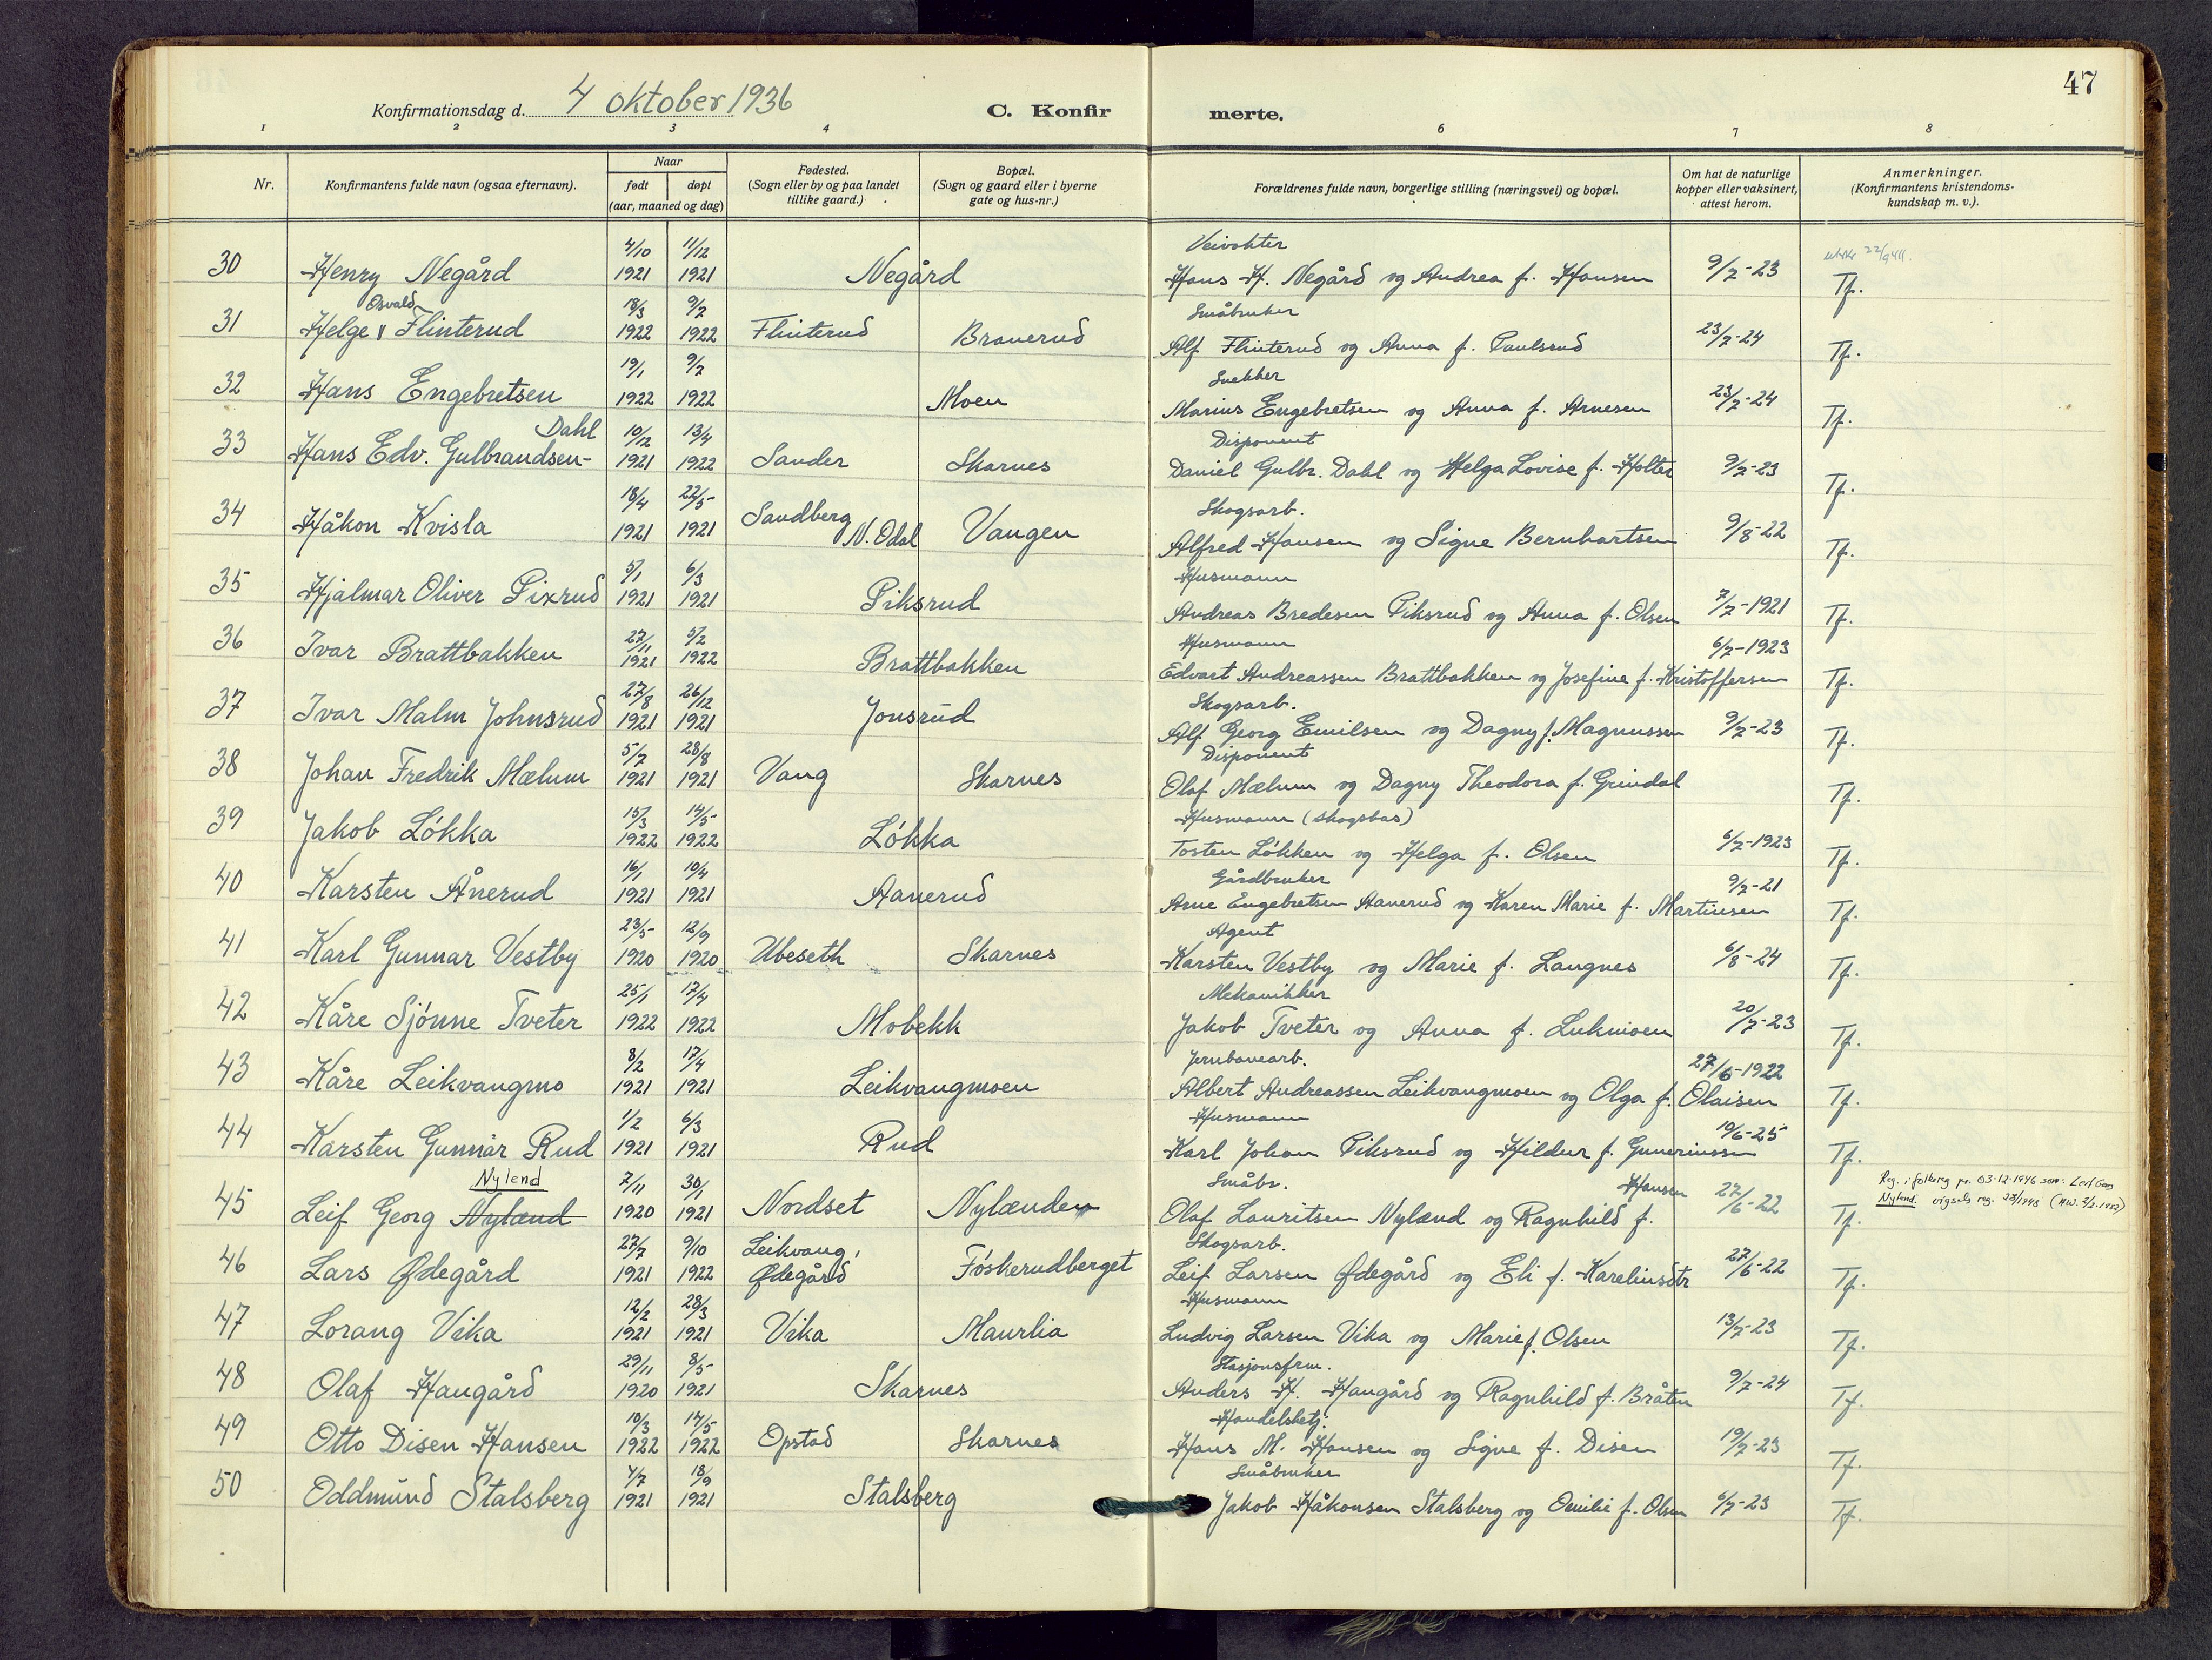 47
Konfirmationsdag d. 4 oktober 1936 C. Konfir merte.
1 2 3 4 6 7 8
Nr.
Konfirmantens fulde navn (ogsaa efternavn).
Naar
født døpt
(aar, maaned og dag)
Fødested.
(Sogn eller by og paa landet
tillike gaard.)
Bopæl.
(Sogn og gaard eller i byerne
gate og hus-nr.)
Forældrenes fulde navn, borgerlige stilling (næringsvei) og bopæl.
Om hat de naturlige
kopper eller vaksinert,
attest herom.
Anmerkninger.
(Konfirmantens kristendoms-
kundskap m. v.).
4/10 11/12 Veivokter
30 Henry Negård 1921 1921 Negård Hans H. Negård og Andrea f. Hansen 9/7-23 Tf.
Osvald 18/3 9/7 Småbruker
31 Helge Flinterud 1922 1922 Flinterud Branerud Alf Flinterud og Anna f. Paulsrud 23/7-24 Tf.
19/1 9/7 Snekker
32 Hans Engebretsen 1922 1922 Moen Marius Engebretsen og Anna f. Arnesen 23/7-24 Tf.
Dahl 10/12 13/4 Disponent
33 Hans Edv. Gulbrandsen- 1921 1922 Sander Skarnes Daniel Gulbr. Dahl og Helga Lovise f. Holter 9/7-23 Tf.
18/4 22/5 Sandberg Skogsarb.
34 Håkon Kvisla 1921 1921 N. Odal Vangen Alfred Hansen og Signe Bernhartsen 9/8-22 Tf.
5/1 6/3 Husmann
35 Hjalmar Oliver Pixrud 1921 1921 Piksrud Andreas Bredesen Piksrud og Anna f. Olsen 7/7-1921 Tf.
27/11 5/2 Husmann
36 Ivar Brattbakken 1921 1922 Brattbakken Edvart Andreassen Brattbakken og Josefine f. Kristoffersen 6/7-1923 Tf.
27/8 26/12 Skogsarb.
37 Ivar Malm Johnsrud 1921 1921 Jonsrud Alf Georg Emilsen og Dagny f. Magnussen 9/7-23 Tf.
5/7 28/8 Disponent
38 Johan Fredrik Mælum 1921 1921 Vang Skarnes Olaf Mælum og Dagny Theodora f. Grindal Tf.
15/3 14/5 Husmann (skogsbas)
39 Jakob Løkka 1922 1922 Løkka Tosten Løkken og Helga f. Olsen 6/7-1923 Tf.
16/1 10/4 Gårdbruker
40 Karsten Ånerud 1921 1921 Aanerud Arne Engebretsen Aanerud og Karen Marie f. Martinsen 9/7-21 Tf.
23/5 12/9 Agent
41 Karl Gunnar Vestby 1920 1920 Ubeseth Skarnes Karsten Vestby og Marie f. Langnes 6/8-24 Tf.
25/1 17/4 Mekanikker
42 Kåre Sjønne Tveter 1922 1922 Mobekk Jakob Tveter og Anna f. Lukmoen 20/7-23 Tf.
8/2 17/4 Jernbanearb.
43 Kåre Leikvangmo 1921 1921 Leikvangmoen Albert Andreassen Leikvangmoen og Olga f. Olaisen 27/6-1922 Tf.
1/2 6/3 Husmann
44 Karsten Gunnar Rud 1921 1921 Rud Karl Johan Piksrud og Hildur f. Guneriussen 19/6-25 Tf.
Nylend 7/11 30/1 Småbr. Hansen
45 Leif Georg Nylænd 1920 1921 Nordset Nylænden Olaf Lauritsen Nylænd og Ragnhild f. 27/6-22 Tf.
Reg. i folkereg pr. 03-12-1946 som: Leif Georg
Nylend. vigsels reg. 28/1948
27/7 9/10 Leikvang, Skogsarb.
46 Lars Ødegård 1921 1922 Ødegård Føskerudberget Leif Larsen Ødegård og Eli f. Kareliusdtr 27/6-22 Tf.
12/2 28/3 Husmann
47 Lorang Vika 1921 1921 Vika Maurlia Ludvig Larsen Vika og Marie f. Olsen 13/7-23 Tf.
29/11 8/5 Stasjonsfrm.
48 Olaf Haugård 1920 1921 Skarnes Anders H. Haugård og Ragnhild f. Bråten 9/7-24 Tf.
10/3 14/5 Handelsbetj.
49 Otto Disen Hansen 1922 1922 Opstad Skarnes Hans M. Hansen og Signe f. Disen 19/7-23 Tf.
4/7 18/9 Småbruker
50 Oddmund Stalsberg 1921 1921 Stalsberg Jakob Håkonsen Stalsberg og Emilie f. Olsen 6/7-23 Tf.